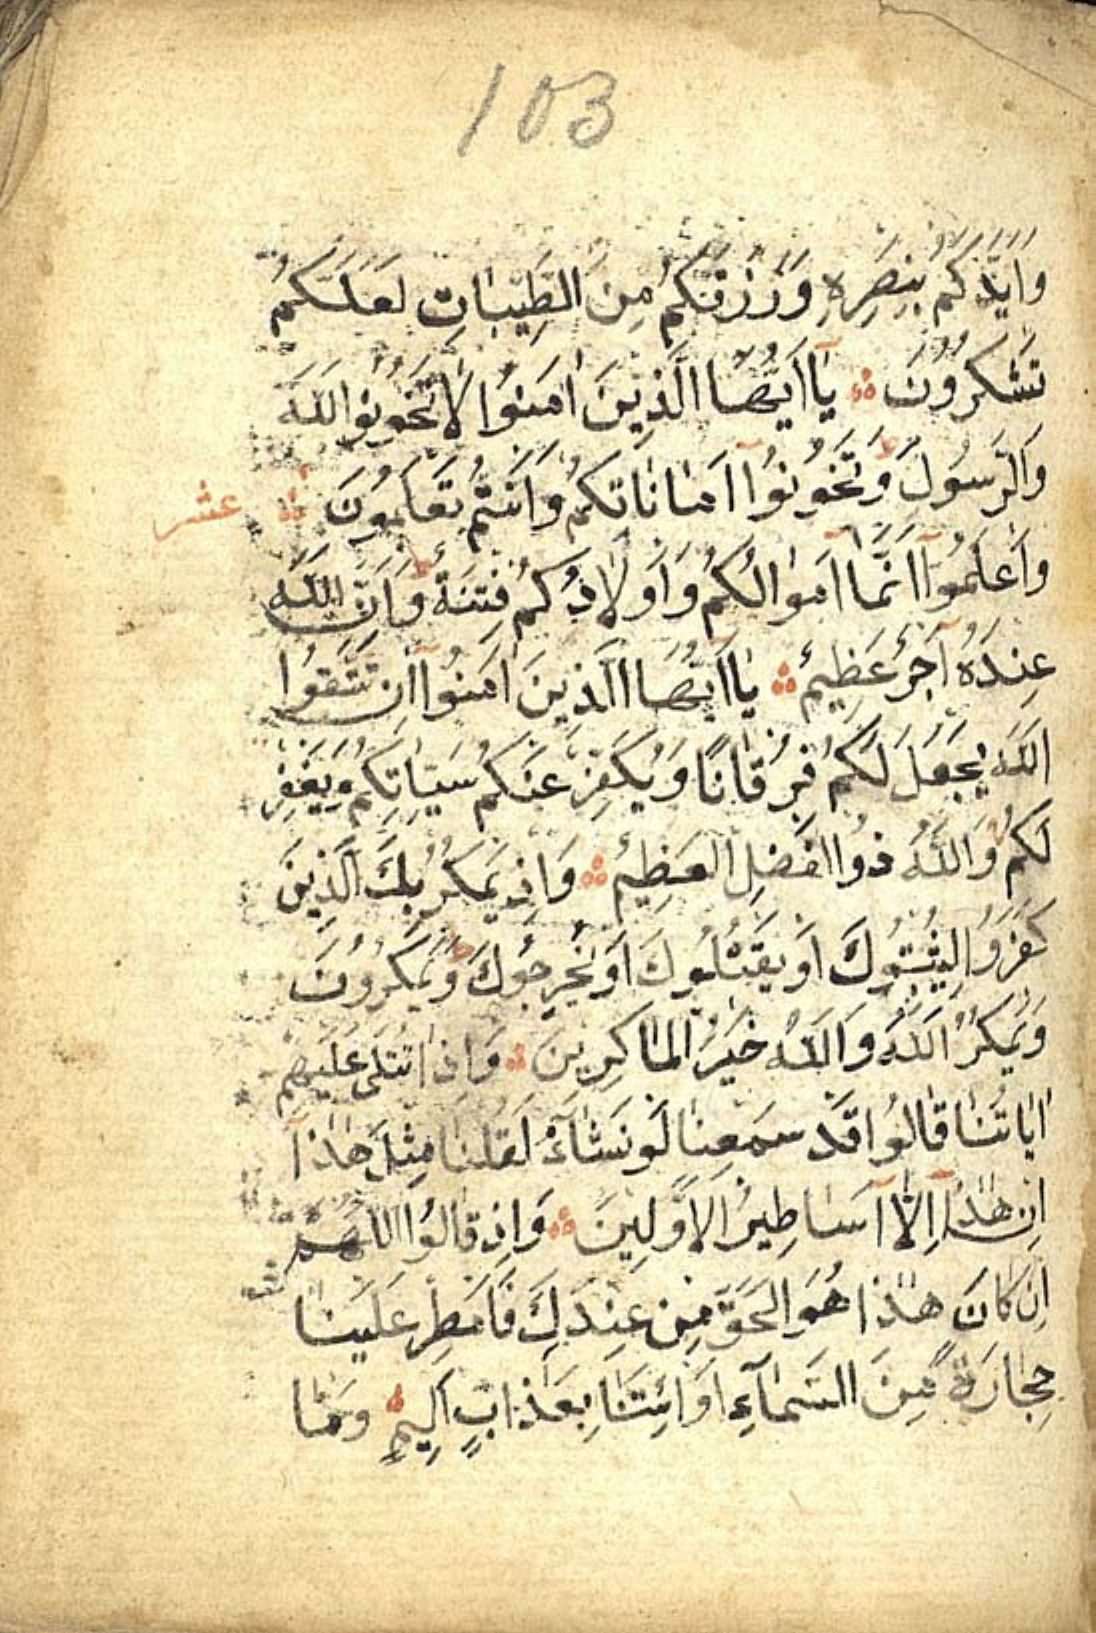 103
وَاَيَّدَكُمْ بِنَصْرِهِ وَرَزَقَكُمْ مِنَ الطَّيِّبَاتِ لَعَلَّكُمْ
تَشْكُرُونَ يَا اَيُّهَا الَّذِينَ اٰمَنُوا لَا تَخُونُوا اللّٰهَ
وَالرَّسُولَ وَتَخُونُوا اَمَانَاتِكُمْ وَاَنْتُمْ تَعْلَمُونَ عشر
وَاعْلَمُوا اَنَّمَا اَمْوَالُكُمْ وَاَوْلَادُكُمْ فِتْنَةٌ وَاَنَّ اللّٰهَ
عِنْدَهُ اَجْرٌ عَظِيمٌ يَا اَيُّهَا الَّذِينَ اٰمَنُوا اِنْ تَتَّقُوا
اللّٰهَ يَجْعَلْ لَكُمْ فُرْقَانًا وَيُكَفِّرْ عَنْكُمْ سَيِّاٰتِكُمْ وَيَغْفِرْ
لَكُمْ وَاللّٰهُ ذُوا الْفَضْلِ الْعَظِيمِ وَاِذْ يَمْكُرُ بِكَ الَّذِينَ
كَفَرُوا لِيُثْبِتُوكَ اَوْ يَقْتُلُوكَ اَوْ يُخْرِجُوكَ وَيَمْكُرُونَ
وَيَمْكُرُ اللّٰهُ وَاللّٰهُ خَيْرُ الْمَاكِرِينَ وَاِذَا تُتْلٰى عَلَيْهِمْ
اٰيَاتُنَا قَالُوا قَدْ سَمِعْنَا لَوْ نَشَاءُ لَقُلْنَا مِثْلَ هٰذَا
اِنْ هٰذَا اِلَّا اَسَاطِيرُ الْاَوَّلِينَ وَاِذْ قَالُوا اللّٰهُمَّ
اِنْ كَانَ هٰذَا هُوَ الْحَقَّ مِنْ عِنْدِكَ فَاَمْطِرْ عَلَيْنَا
حِجَارَةً مِنَ السَّمَاءِ اَوِ ائْتِنَا بِعَذَابٍ اَلِيمٍ وَمَا